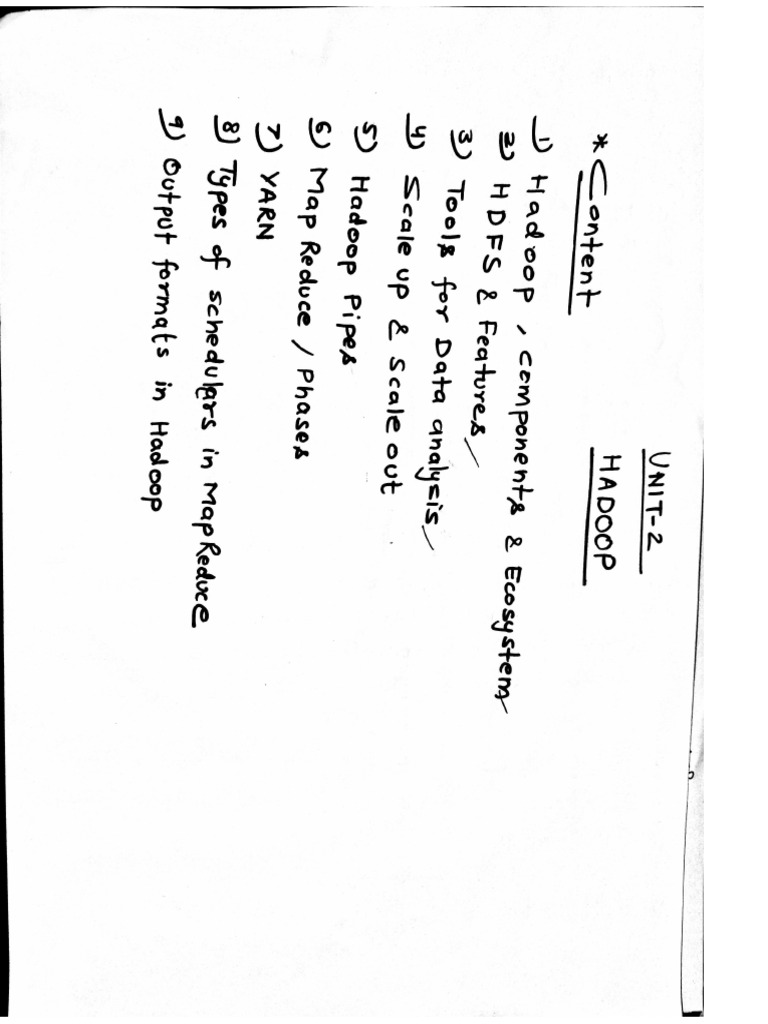 UNIT-2
HADOOP
* Content
1) Hadoop, components & Ecosystem
2) HDFS & Features
3) Tools for Data analysis
4) Scale up & Scale out
5) Hadoop Pipes
6) Map Reduce / Phases
7) YARN
8) Types of schedulars in MapReduce
9) Output formats in Hadoop